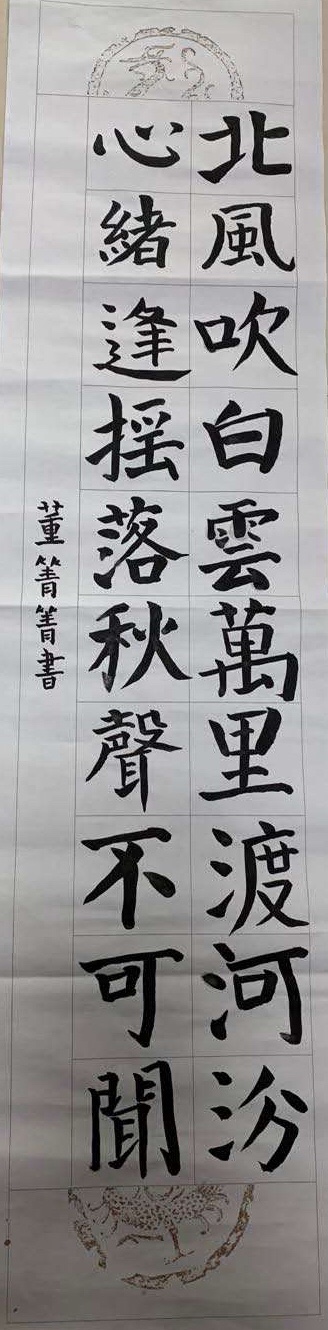 北風吹白雲萬里渡河汾
心緒逢摇落秋聲不可聞
董箐箐書